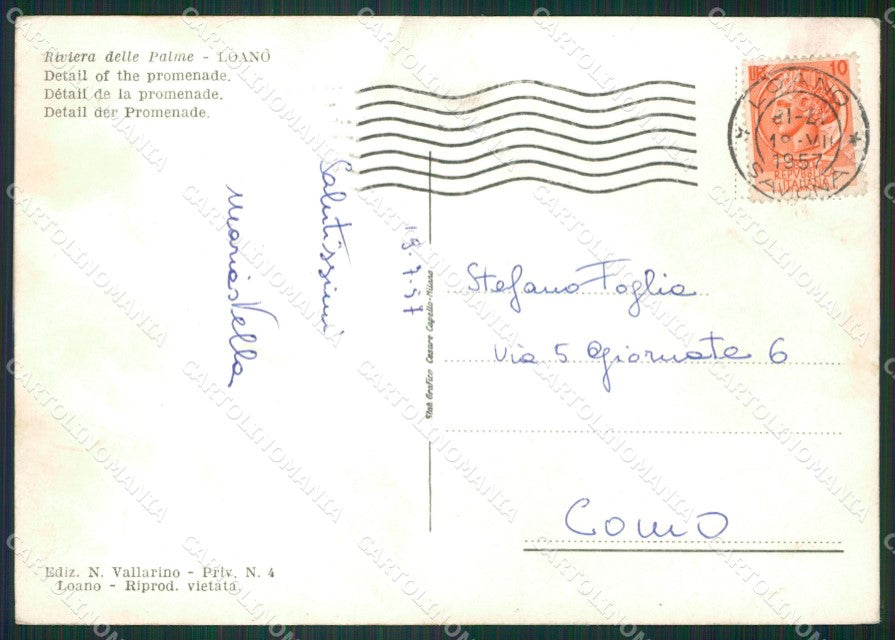 Riviera delle Palme - LOANO
Detail of the promenade.
Détail de la promenade.
Detail der Promenade.
LIRE 10
LOANO
1957
SAVONA
REPVBBLICA
ITALIANA
Salutissimi
18.7.57
Stab. Grafico Cesare Capello-Milano
Stefano Foglia
Via 5 Giornate 6
Como
Ediz. N. Vallarino - Priv. N. 4
Loano - Riprod. vietata
CARTOLINOMANIA